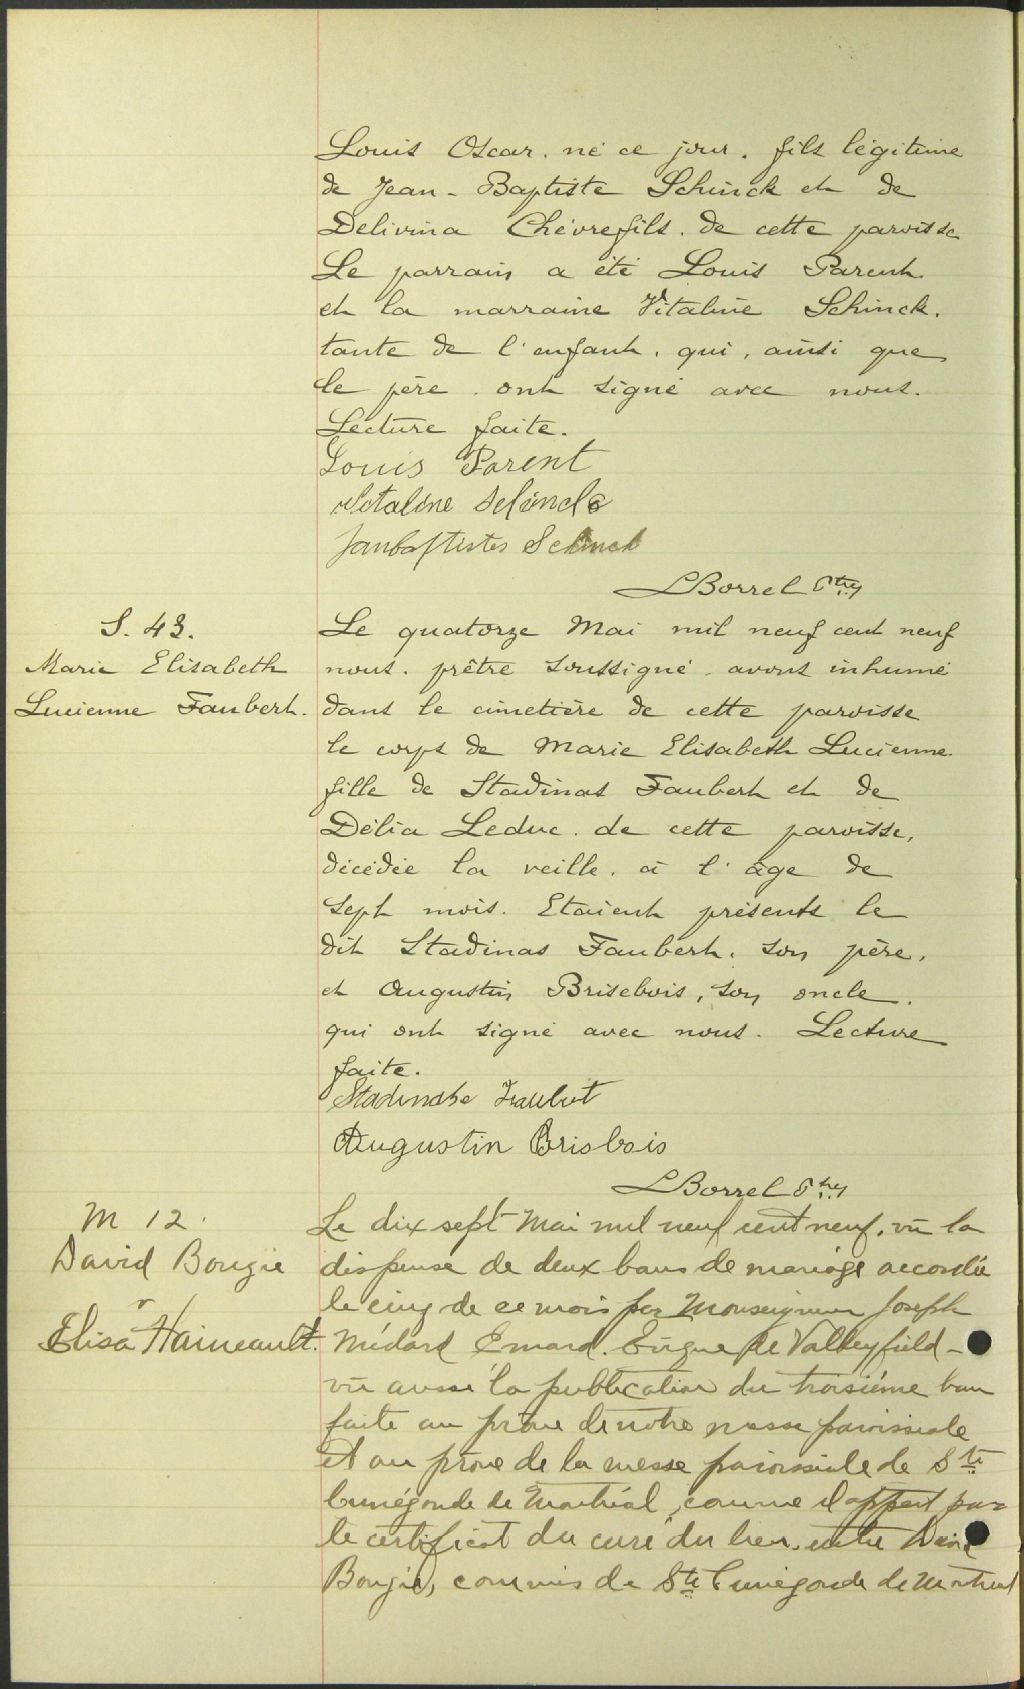 Louis Oscar. né ce jour. fils légitime
de Jean-Baptiste Schinck et de
Delivina Chèvrefils. de cette paroisse
Le parrain a été Louis Parent
et la marraine Vitaline Schinck.
tante de l'enfant. qui, ainsi que
le père. ont signé avec nous.
Lecture faite.
Louis Parent
Vitaline Schinck
Janbaptistes Schinck
L Borrel Ptre
S. 43.
Marie Elisabeth
Lucienne Faubert.
Le quatorze Mai mil neuf cent neuf
nous. prêtre soussigné. avons inhumé
dans le cimetière de cette paroisse
le corps de Marie Elisabeth Lucienne.
fille de Stadinas Faubert et de
Délia Leduc. de cette paroisse,
décédée la veille. à l'âge de
sept mois. Etaient présents le
dit Stadinas Faubert. son père,
et Augustin Brisebois, son oncle.
qui ont signé avec nous. Lecture
faite.
Stadinase Faubert
Augustin Brisbois
L Borrel Ptre
M 12.
David Bougie
&
Elisa Haineault.
Le dix sept Mai mil neuf cent neuf. vu la
dispense de deux bans de mariage accordée
le cinq de ce mois par Monseigneur Joseph
Médard Emard. Evêque de Valleyfield -
vu aussi la publication du troisième ban
faite au prône de notre messe paroissiale
et au prône de la messe paroissiale de Ste
Cunégonde de Montréal, comme il appert par
le certificat du curé du lieu. entre David
Bougie, commis de Ste Cunégonde de Montréal